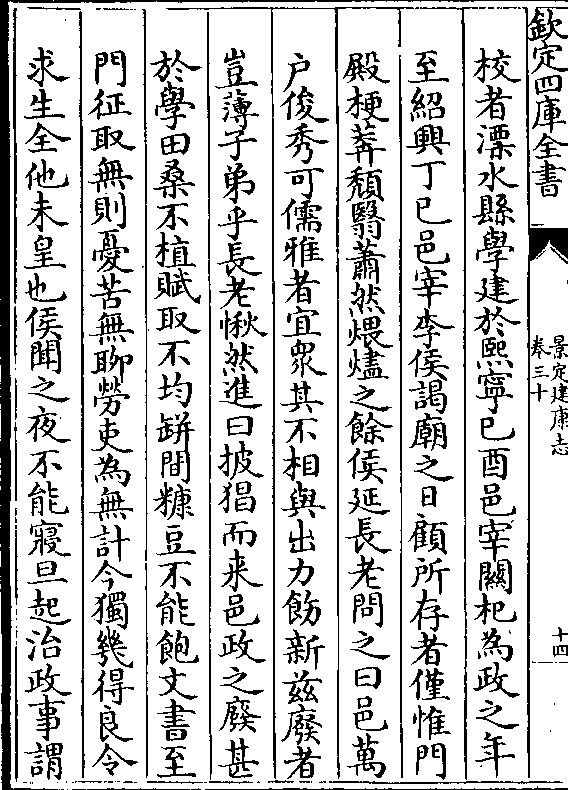 欽定四庫全書
景定建康志
卷三十
十四
校者溧水縣學建於熙寧已酉邑宰關杞為政之年
至紹興丁已邑宰李侯謁廟之日顧所存者僅惟門
殿梗莽頽翳蕭然煨燼之餘侯延長老問之曰邑萬
户俊秀可儒雅者宜衆其不相與出力飭新兹廢者
豈薄子弟乎長老愀然進曰披猖而来邑政之廢甚
於學田桑不植賦取不均缾間糠豆不能飽文書至
門征取無則憂苦無聊勞吏為無計今獨幾得良令
求生全他未皇也侯聞之夜不能寢旦起治政事謂